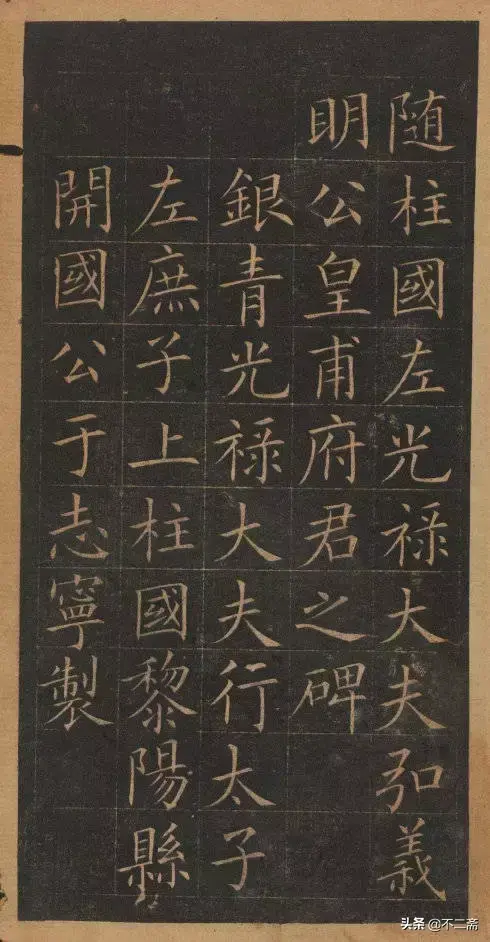 随柱國左光禄大夫弘義
明公皇甫府君之碑
銀青光禄大夫行太子
左庶子上柱國黎陽縣
開國公于志寧製
头条 @不二斋